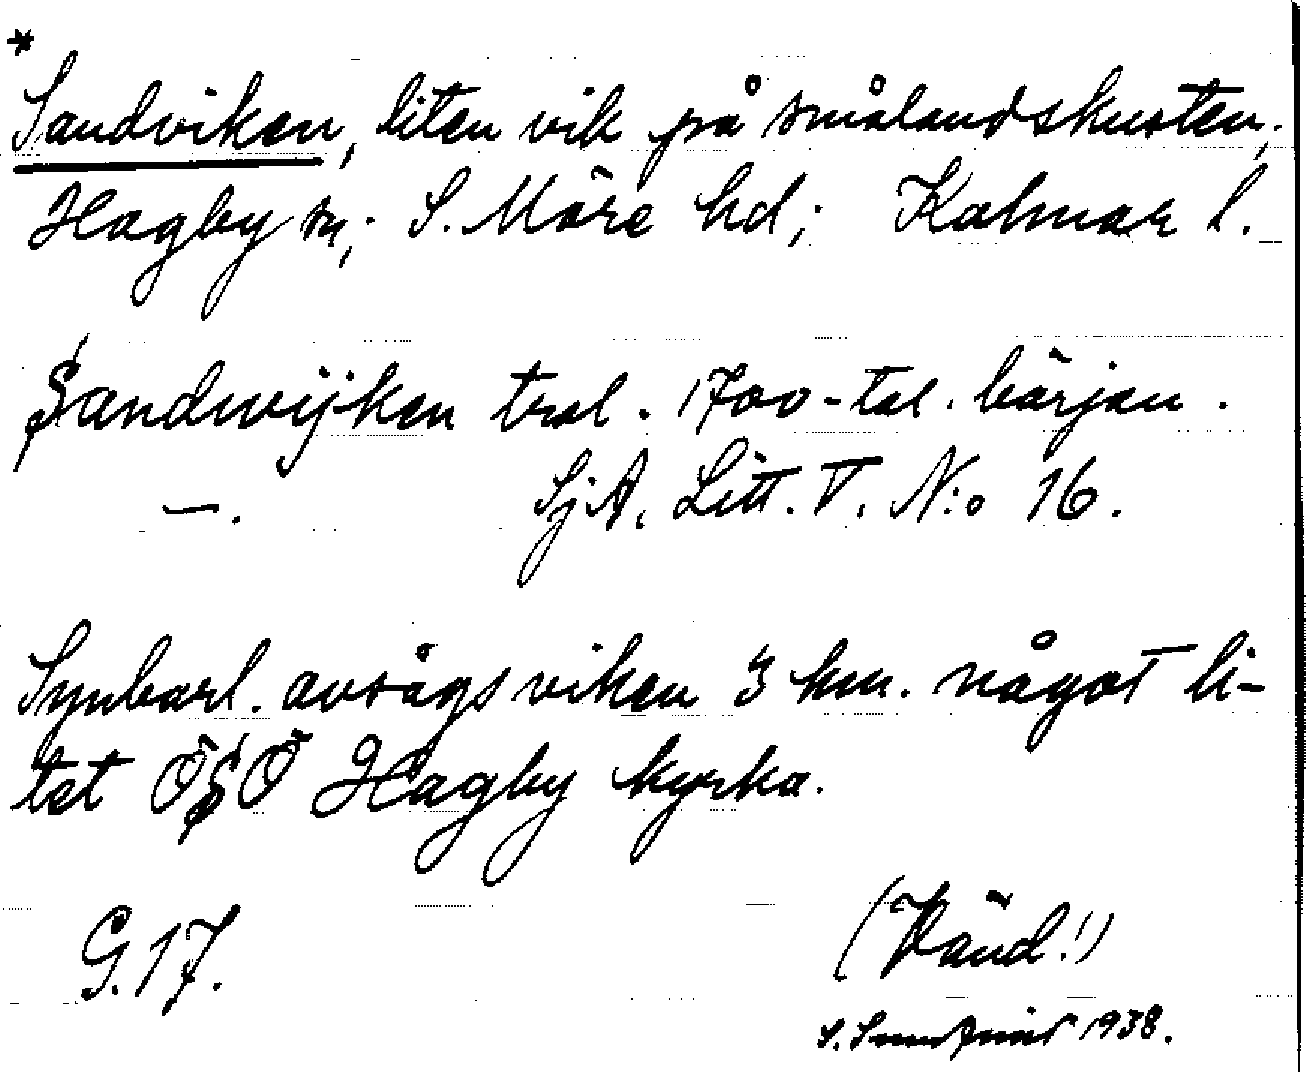 *
Sandviken, liten vik på smålandskusten;
Hagby sn; S. Möre hd; Kalmar l.
Sandwijken trol. 1700-tal. början.
—. SjA. Litt. V. N:o 16.
Synbarl. avsågs viken 3 km. något li-
tet ÖSÖ Hagby kyrka.
G.17.
(Vänd!)
S. Sundqvist 1938.